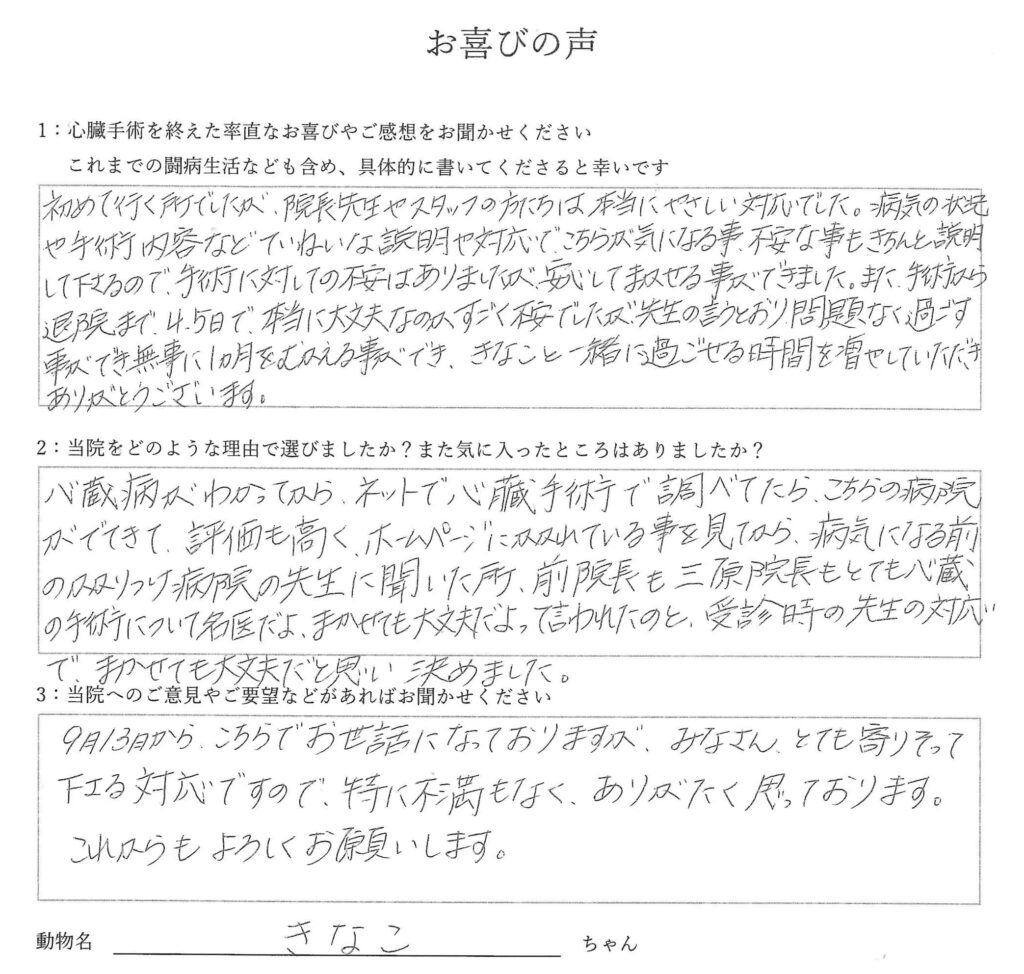 お喜びの声
1：心臓手術を終えた率直なお喜びやご感想をお聞かせください
これまでの闘病生活なども含め、具体的に書いてくださると幸いです
初めて行く所でしたが、院長先生やスタッフの方たちは本当にやさしい対応でした。病気の状況
や手術内容などていねいな説明や対応で、こちらが気になる事、不安な事もきちんと説明
して下さるので、手術に対しての不安はありましたが、安心してまかせる事ができました。また、手術から
退院まで、4.5日で、本当に大丈夫なのかすごく不安でしたが、先生の言うとおり問題なく過ごす
事ができ無事に1ヵ月をむかえる事ができ、きなこと一緒に過ごせる時間を増やしていただき
ありがとうございます。
2：当院をどのような理由で選びましたか？また気に入ったところはありましたか？
心蔵病がわかってから、ネットで心臓手術で調べてたら、こちらの病院
がでてきて、評価も高く、ホームページにかかれている事を見てから、病気になる前
のかかりつけ病院の先生に聞いた所、前院長も三原院長もとても心蔵
の手術について名医だよ、まかせても大丈夫だよって言われたのと、受診時の先生の対応
で、まかせても大丈夫だと思い決めました。
3：当院へのご意見やご要望などがあればお聞かせください
9月13日から、こちらでお世話になっておりますが、みなさん、とても寄りそって
下さる対応ですので、特に不満もなく、ありがたく思っております。
これからもよろしくお願いします。
動物名 きなこ ちゃん